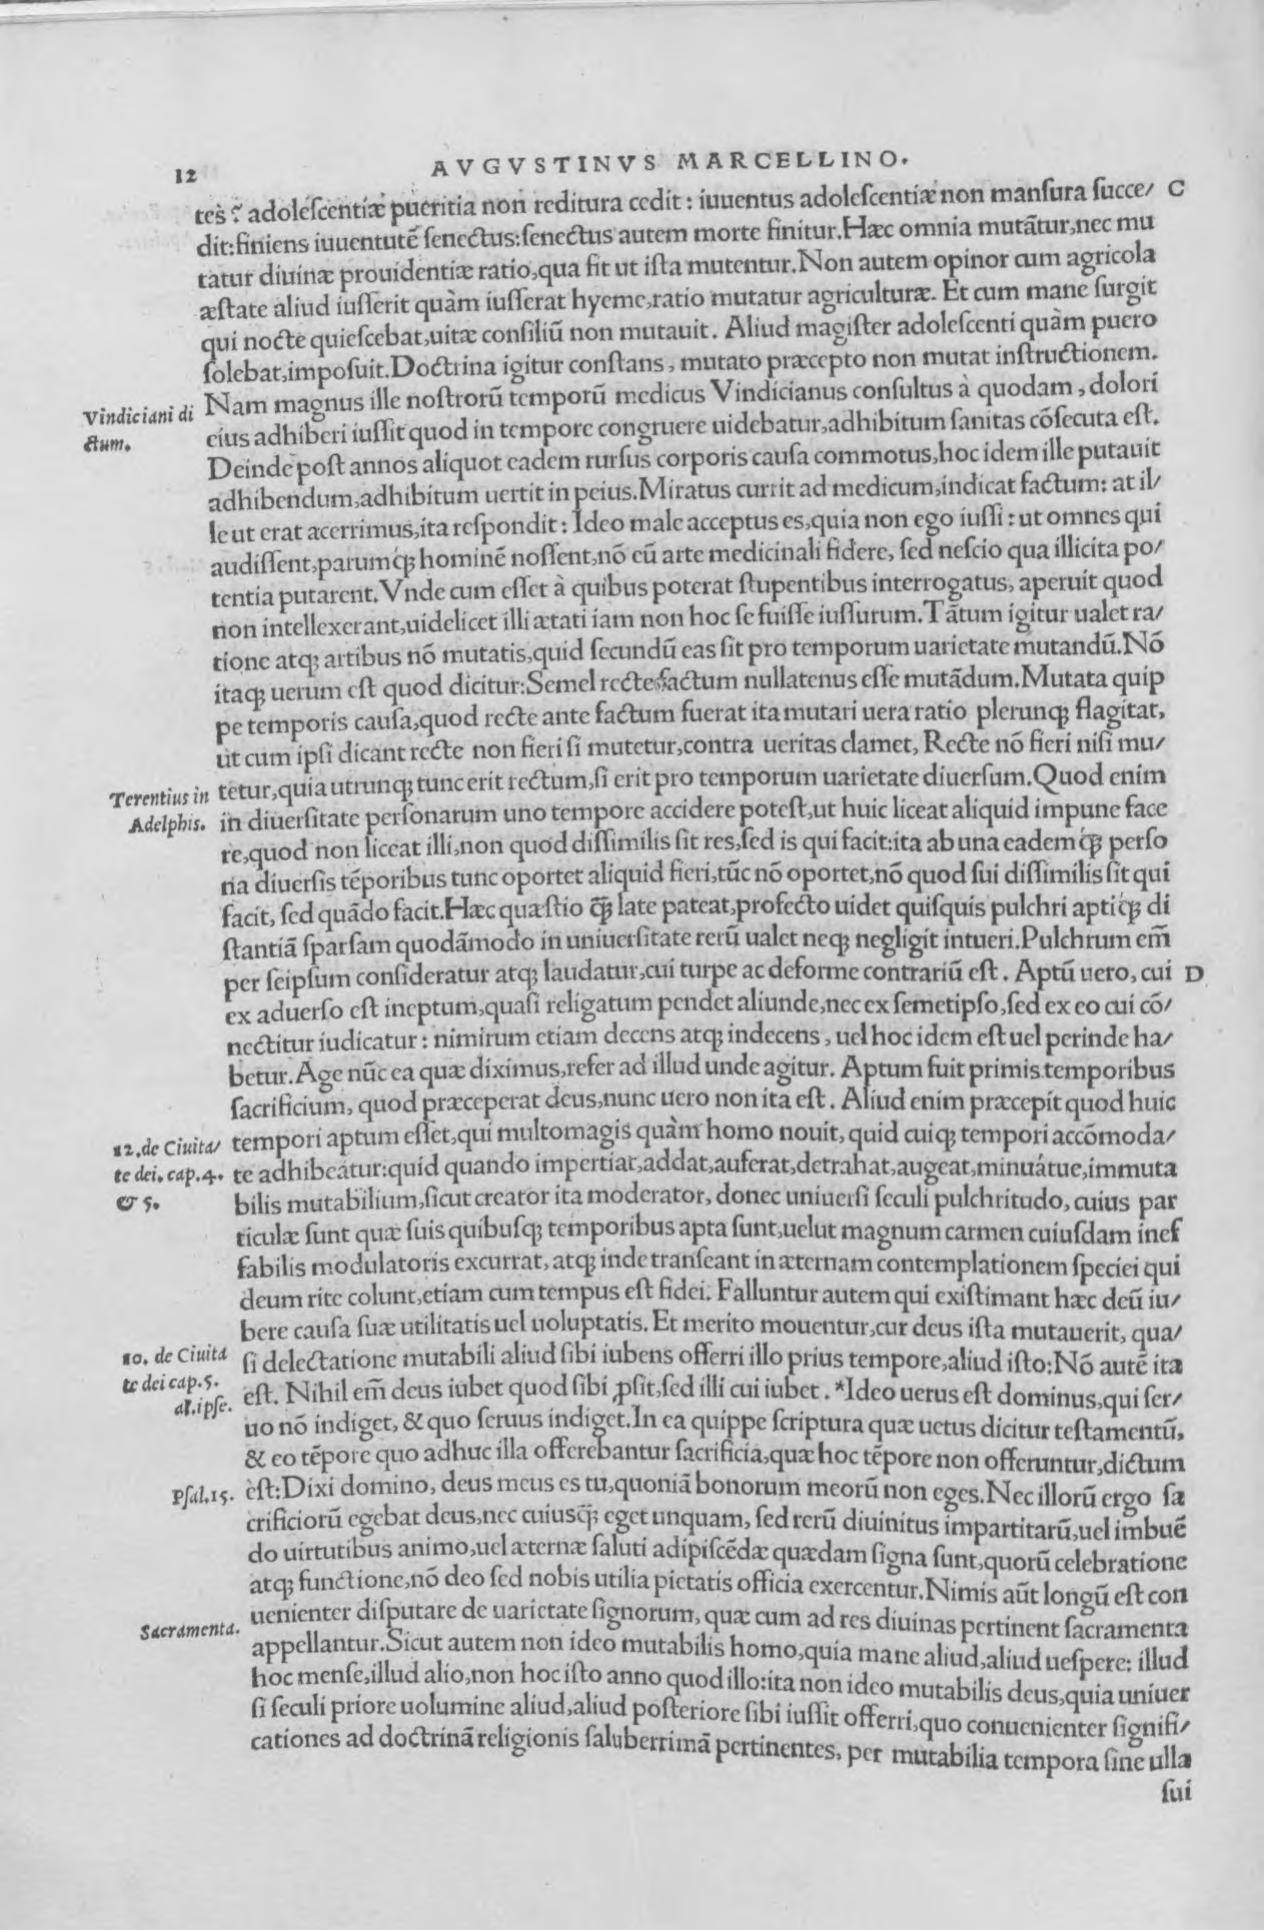 12
AVGVSTINVS MARCELLINO.
tes? adolescentiæ pueritia non reditura cedit: iuuentus adolescentiæ non mansura succe/ C
dit: finiens iuuentutē senectus: senectus autem morte finitur. Hæc omnia mutātur, nec mu
tatur diuinæ prouidentiæ ratio, qua fit ut ista mutentur. Non autem opinor cum agricola
æstate aliud iusserit quàm iusserat hyeme, ratio mutatur agriculturæ. Et cum mane surgit
qui nocte quiescebat, uitæ consiliū non mutauit. Aliud magister adolescenti quàm puero
solebat, imposuit. Doctrina igitur constans, mutato præcepto non mutat instructionem.
Vindiciani di
ctum.
Nam magnus ille nostrorū temporū medicus Vindicianus consultus à quodam, dolori
eius adhiberi iussit quod in tempore congruere uidebatur, adhibitum sanitas cōsecuta est.
Deinde post annos aliquot eadem rursus corporis causa commotus, hoc idem ille putauit
adhibendum, adhibitum uertit in peius. Miratus currit ad medicum, indicat factum: at il/
le ut erat acerrimus, ita respondit: Ideo male acceptus es, quia non ego iussi: ut omnes qui
audissent, parumq́; hominē nossent, nō eū arte medicinali fidere, sed nescio qua illicita po/
tentia putarent. Vnde cum esset à quibus poterat stupentibus interrogatus, aperuit quod
non intellexerant, uidelicet illi ætati iam non hoc se fuisse iussurum. Tātum igitur ualet ra/
tione atq; artibus nō mutatis, quid secundū eas sit pro temporum uarietate mutandū. Nō
itaq; uerum est quod dicitur: Semel recte factum nullatenus esse mutādum. Mutata quip
pe temporis causa, quod recte ante factum fuerat ita mutari uera ratio plerunq; flagitat,
ut cum ipsi dicant recte non fieri si mutetur, contra ueritas clamet, Recte nō fieri nisi mu/
Terentius in
Adelphis.
tetur, quia utrunq; tunc erit rectum, si erit pro temporum uarietate diuersum. Quod enim
in diuersitate personarum uno tempore accidere potest, ut huic liceat aliquid impune face
re, quod non liceat illi, non quod dissimilis sit res, sed is qui facit: ita ab una eademq́; perso
na diuersis tēporibus tunc oportet aliquid fieri, tūc nō oportet, nō quod sui dissimilis sit qui
facit, sed quādo facit. Hæc quæstio q̄ late pateat, profecto uidet quisquis pulchri aptiq́; di
stantiā sparsam quodāmodo in uniuersitate rerū ualet neq; negligit intueri. Pulchrum em̄
per seipsum consideratur atq; laudatur, cui turpe ac deforme contrariū est. Aptū uero, cui D
ex aduerso est ineptum, quasi religatum pendet aliunde, nec ex semetipso, sed ex eo cui cō/
nectitur iudicatur: nimirum etiam decens atq; indecens, uel hoc idem est uel perinde ha/
betur. Age nūc ea quæ diximus, refer ad illud unde agitur. Aptum fuit primis temporibus
sacrificium, quod præceperat deus, nunc uero non ita est. Aliud enim præcepit quod huic
12. de Ciuita/
te dei. cap. 4.
& 5.
tempori aptum esset, qui multomagis quàm homo nouit, quid cuiq; tempori accōmoda/
te adhibeatur: quid quando impertiat, addat, auferat, detrahat, augeat, minuátue, immuta
bilis mutabilium, sicut creator ita moderator, donec uniuersi seculi pulchritudo, cuius par
ticulæ sunt quæ suis quibusq; temporibus apta sunt, uelut magnum carmen cuiusdam inef
fabilis modulatoris excurrat, atq; inde transeant in æternam contemplationem speciei qui
deum rite colunt, etiam cum tempus est fidei. Falluntur autem qui existimant hæc deū iu/
bere causa suæ utilitatis uel uoluptatis. Et merito mouentur, cur deus ista mutauerit, qua/
10. de Ciuita
te dei cap. 5.
al. ipse.
si delectatione mutabili aliud sibi iubens offerri illo prius tempore, aliud isto: Nō autē ita
est. Nihil em̄ deus iubet quod sibi ꝓsit, sed illi cui iubet. *Ideo uerus est dominus, qui ser/
uo nō indiget, & quo seruus indiget. In ea quippe scriptura quæ uetus dicitur testamentū,
& eo tēpore quo adhuc illa offerebantur sacrificia, quæ hoc tēpore non offeruntur, dictum
Psal. 15.
est: Dixi domino, deus meus es tu, quoniā bonorum meorū non eges. Nec illorū ergo sa
crificiorū egebat deus, nec cuiusq̄; eget unquam, sed rerū diuinitus impartitarū, uel imbuē
do uirtutibus animo, uel æternæ saluti adipiscēdæ quædam signa sunt, quorū celebratione
atq; functione, nō deo sed nobis utilia pietatis officia exercentur. Nimis aūt longū est con
Sacramenta.
uenienter disputare de uarietate signorum, quæ cum ad res diuinas pertinent sacramenta
appellantur. Sicut autem non ideo mutabilis homo, quia mane aliud, aliud uespere: illud
hoc mense, illud alio, non hoc isto anno quod illo: ita non ideo mutabilis deus, quia uniuer
si seculi priore uolumine aliud, aliud posteriore sibi iussit offerri, quo conuenienter signifi/
cationes ad doctrinā religionis saluberrimā pertinentes, per mutabilia tempora sine ulla
sui